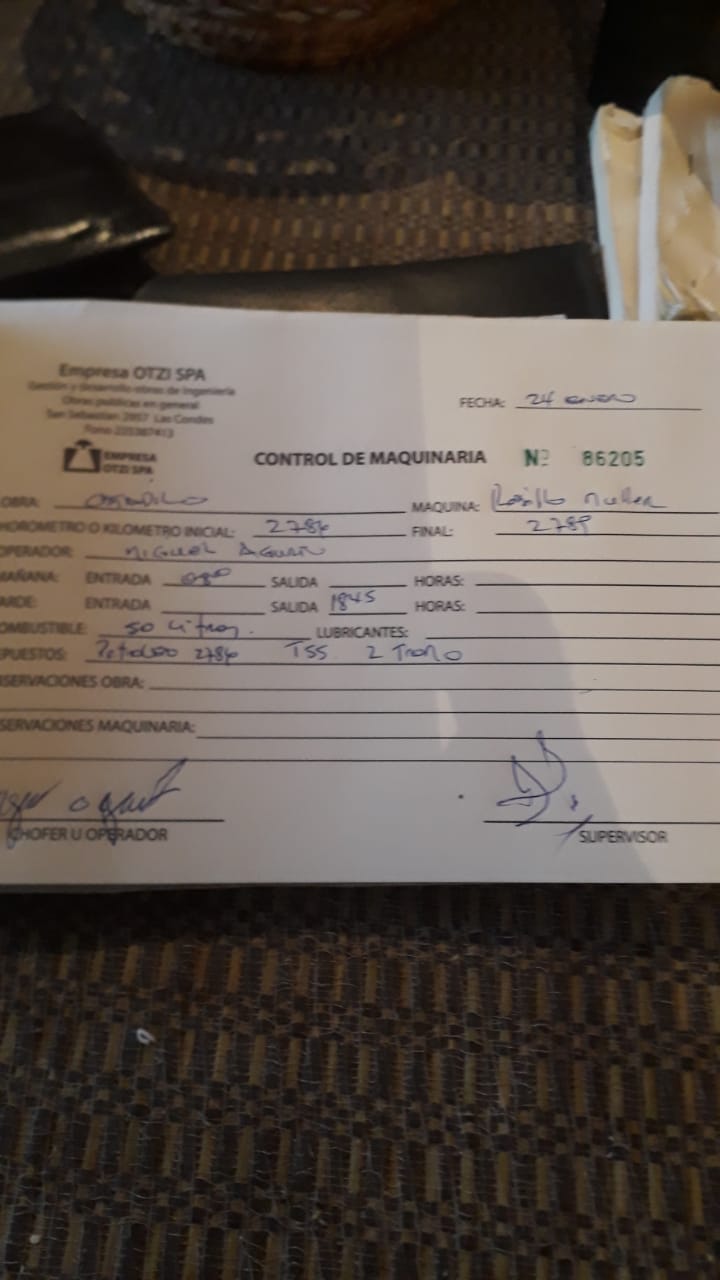 Empresa OTZI SPA
Gestión y desarrollo obras de ingeniería
Obras publicas en general
San Sebastian 2957 Las Condes
Fono 225387413
FECHA: 24 enero
EMPRESA
OTZI SPA
CONTROL DE MAQUINARIA Nº 86205
OBRA: MAQUINA: Rodillo Muller
HOROMETRO O KILOMETRO INICIAL: 2784 FINAL: 2789
OPERADOR: Miguel
MAÑANA: ENTRADA SALIDA HORAS:
TARDE: ENTRADA SALIDA 1845 HORAS:
COMBUSTIBLE: 50 Litros. LUBRICANTES:
EPUESTOS: Petroleo 2784 TSS 2 Tramo
SERVACIONES OBRA:
SERVACIONES MAQUINARIA:
CHOFER U OPERADOR SUPERVISOR